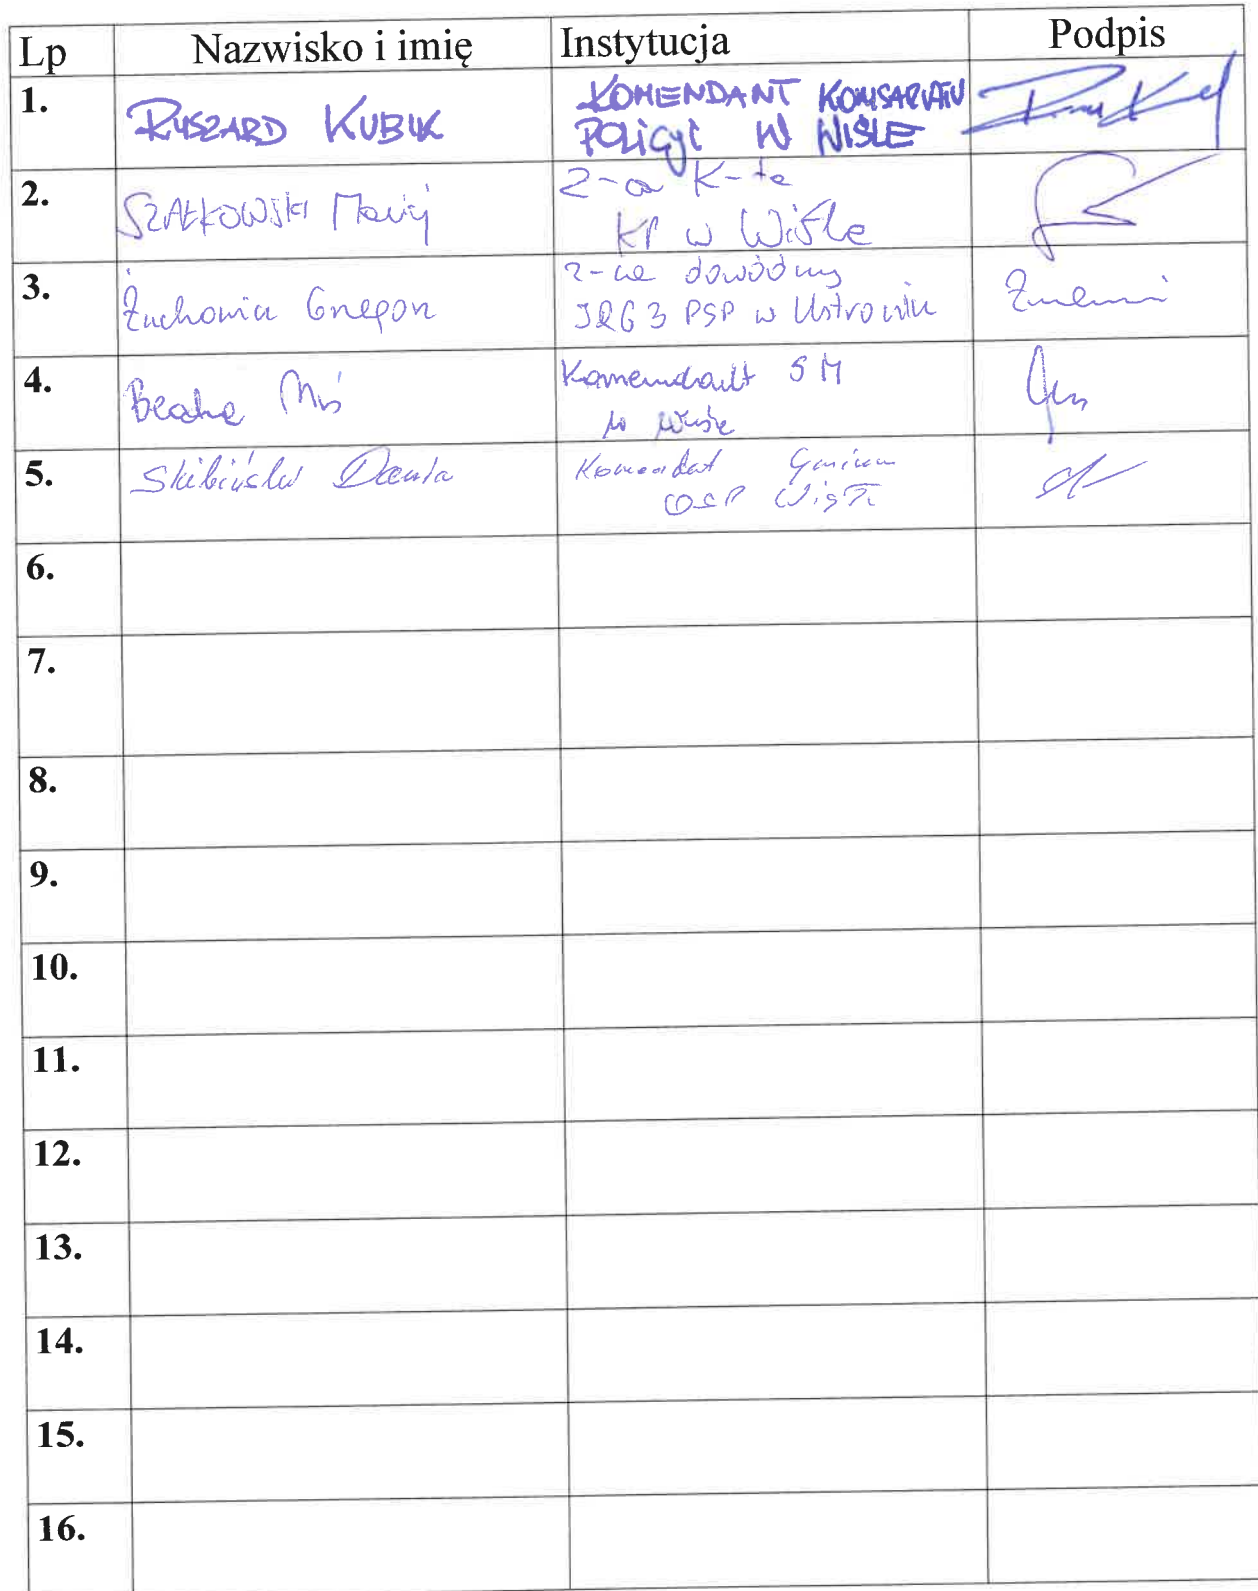 Lp Nazwisko i imię Instytucja Podpis
1. RYSZARD KUBIK KOMENDANT KOMISARIATU
POLICJI W WIŚLE
2. SZAŁKOWSKI Maciej Z-ca K-ta
KP w Wiśle
3. Żuchowicz Grzegorz z-ca dowódcy
JRG 3 PSP w Ustroniu
4. Beata Miś Komendant SM
w Wiśle
5. Skibiński Komendant Gminny
OSP Wisła
6.
7.
8.
9.
10.
11.
12.
13.
14.
15.
16.